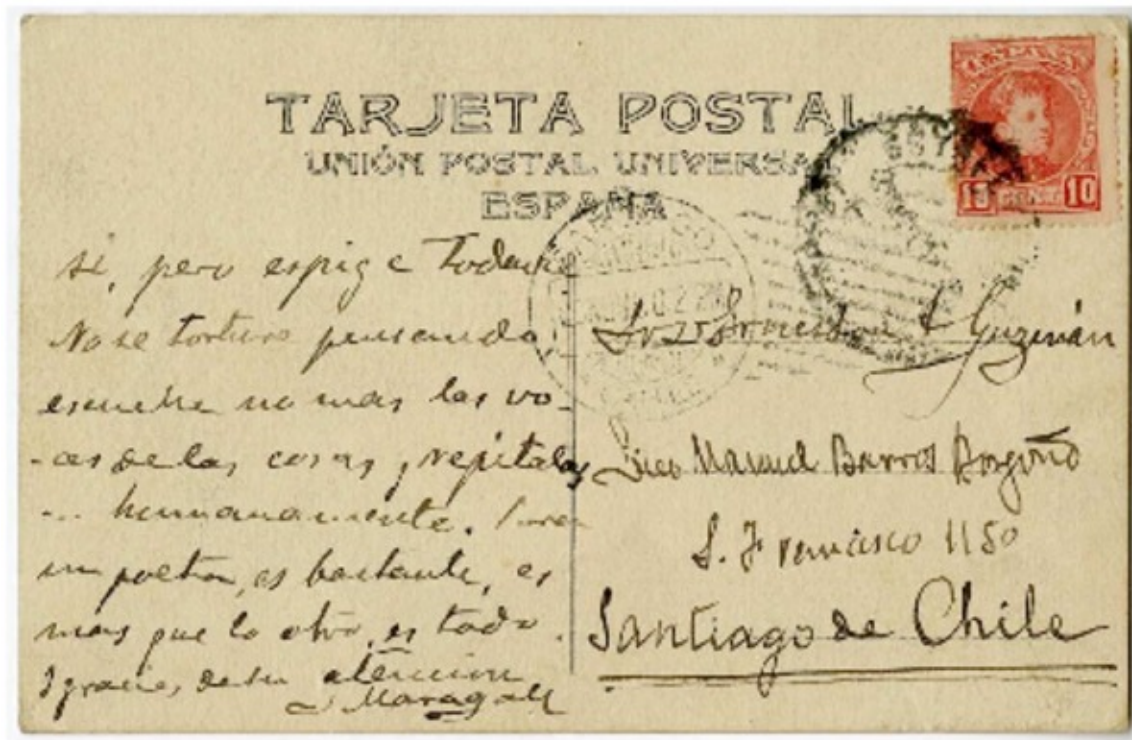 TARJETA POSTAL
UNIÓN POSTAL UNIVERSAL
ESPAÑA
10 10
si, pero todavia
No se torture pensando,
escuche no mas las vo-
-ces de las cosas y repitalas
... humanamente. Para
un poeta, es bastante, es
mas que lo otro, es todo.
y gracias de su atención
J Maragall
Guzmán
Liceo Manuel Barros Borgoño
S. Francisco 1150
Santiago de Chile